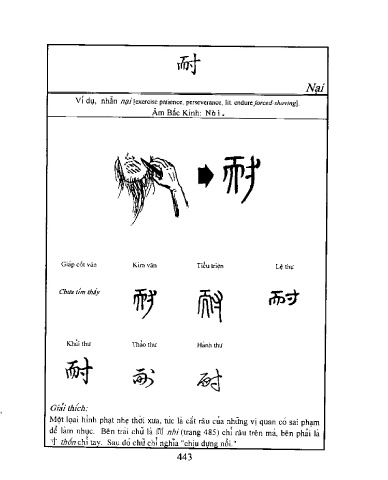 耐
Nại
Ví dụ, nhẫn nại [exercise patience, perseverance, lit. endure forced-shaving].
Âm Bắc Kinh: Nài.
耐
Giáp cốt văn Kim văn Tiểu triện Lệ thư
Chưa tìm thấy 耐 耐 耐
Khải thư Thảo thư Hành thư
耐 耐 耐
Giải thích:
Một loại hình phạt nhẹ thời xưa, tức là cắt râu của những vị quan có sai phạm
để làm nhục. Bên trái chữ là 而 nhi (trang 485) chỉ râu trên má, bên phải là
寸 thốn chỉ tay. Sau đó chữ chỉ nghĩa "chịu đựng nổi."
443